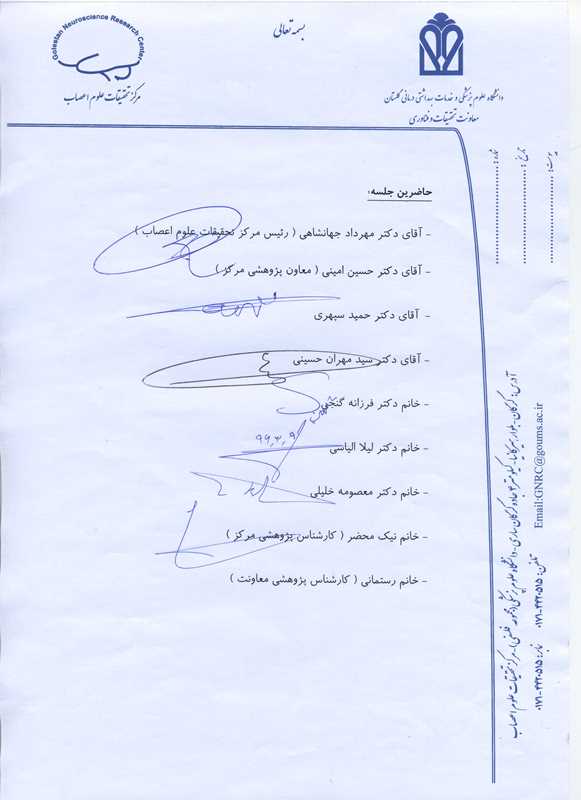 بسمه تعالی
Golestan Neuroscience Research Center
مرکز تحقیقات علوم اعصاب
دانشگاه علوم پزشکی و خدمات بهداشتی درمانی گلستان
معاونت تحقیقات و فناوری
شماره:
تاریخ:
پیوست:
حاضرین جلسه:
- آقای دکتر مهرداد جهانشاهی ( رئیس مرکز تحقیقات علوم اعصاب )
- آقای دکتر حسین امینی ( معاون پژوهشی مرکز )
- آقای دکتر حمید سپهری
- آقای دکتر سید مهران حسینی
- خانم دکتر فرزانه گنجی
- خانم دکتر لیلا الیاسی
۹۹,۳,۹
- خانم دکتر معصومه خلیلی
- خانم نیک محضر ( کارشناس پژوهشی مرکز )
- خانم رستمانی ( کارشناس پژوهشی معاونت )
آدرس: گرگان- بلوار هیرکانیا- کیلومتر ۴ جاده گرگان ساری- دانشگاه علوم پزشکی (مجموعه فلسفی)- مرکز تحقیقات علوم اعصاب
تلفن: ۰۱۷۱-۴۴۲۰۵۱۵ نمابر: ۰۱۷۱-۴۴۲۰۵۱۵
Email:GNRC@goums.ac.ir